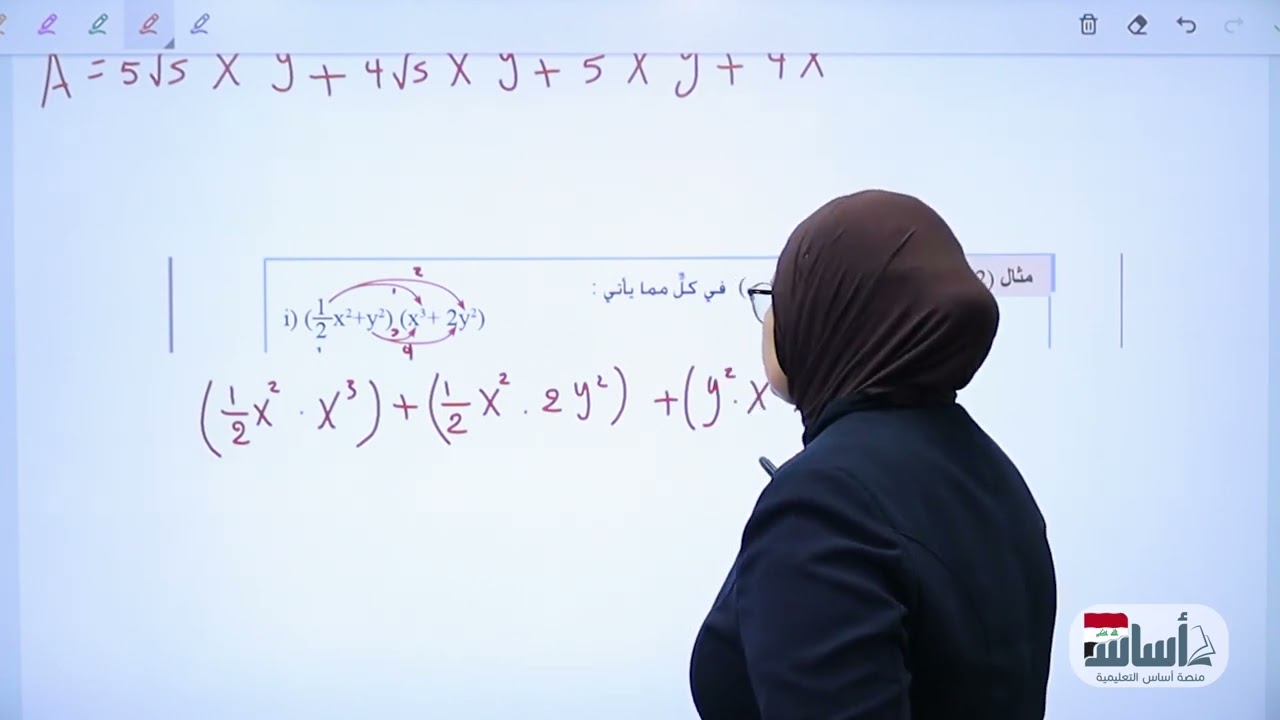 A = 5√5 x y + 4√5 x y + 5 x y + 4 x
مثال (2
) في كلٍّ مما يأتي :
i) (1/2 x²+y²) (x³+ 2y²)
1 2 3 4
(1/2 x² · x³) + (1/2 x² · 2y²) + (y² · x
أساس
منصة أساس التعليمية